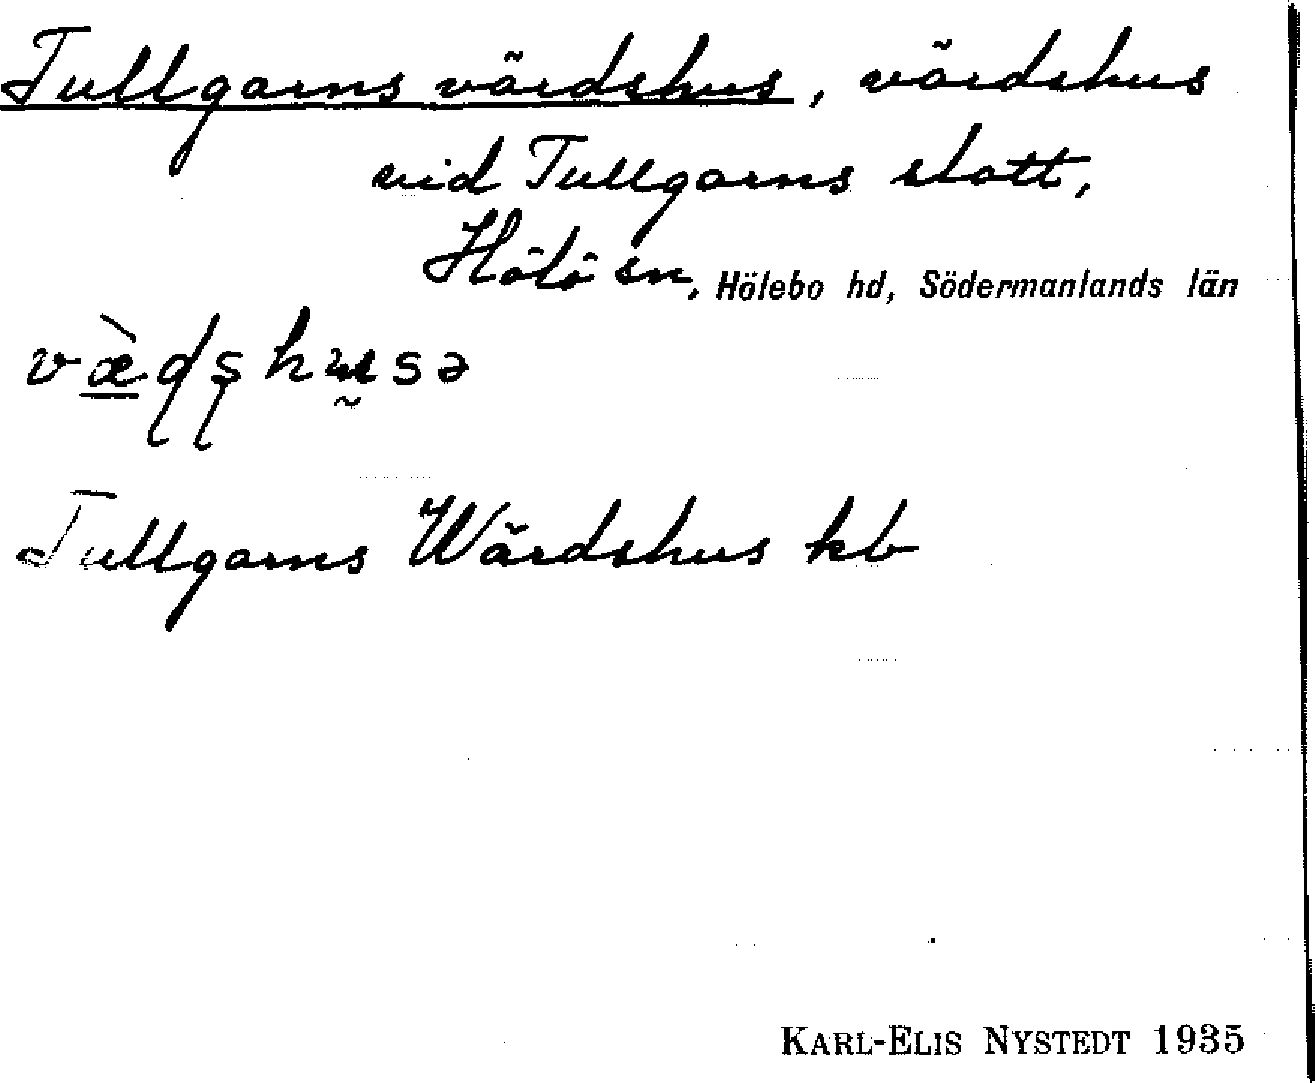 Tullgarns värdshus, värdshus
vid Tullgarns slott,
Hölö sn, Hölebo hd, Södermanlands län
væ̀ḍṣhṵsə
Tullgarns Wärdshus kb
KARL-ELIS NYSTEDT 1935